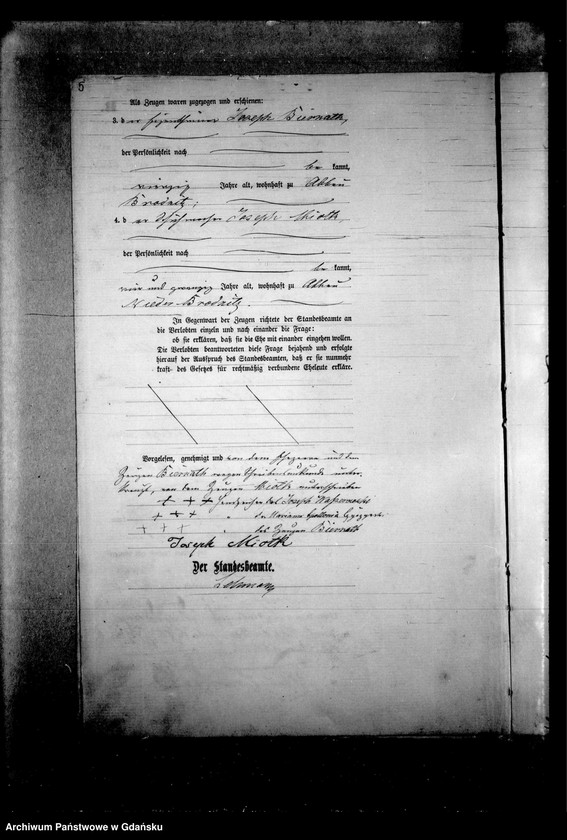 5
Als Zeugen waren zugezogen und erschienen:
3. der Eigenthümer Joseph Biernath,
der Persönlichkeit nach
bekannt,
vierzig Jahre alt, wohnhaft zu
Brodnitz;
4. der Joseph Mioth
der Persönlichkeit nach
bekannt,
und zwanzig Jahre alt, wohnhaft zu
Nieder Brodnitz.
In Gegenwart der Zeugen richtete der Standesbeamte an
die Verlobten einzeln und nach einander die Frage:
ob sie erklären, daß sie die Ehe mit einander eingehen wollen.
Die Verlobten beantworteten diese Frage bejahend und erfolgte
hierauf der Ausspruch des Standesbeamten, daß er sie nunmehr
kraft des Gesetzes für rechtmäßig verbundene Eheleute erkläre.
Vorgelesen, genehmigt und von dem und dem
Zeugen Biernath wegen Schreibensunkunde unter-
kreuzt, von dem Zeugen Mioth unterschrieben
+ + + Handzeichen des Joseph
+ + + " der Marianna
+ + + " des Zeugen Biernath
Joseph Mioth
Der Standesbeamte.
Archiwum Państwowe w Gdańsku